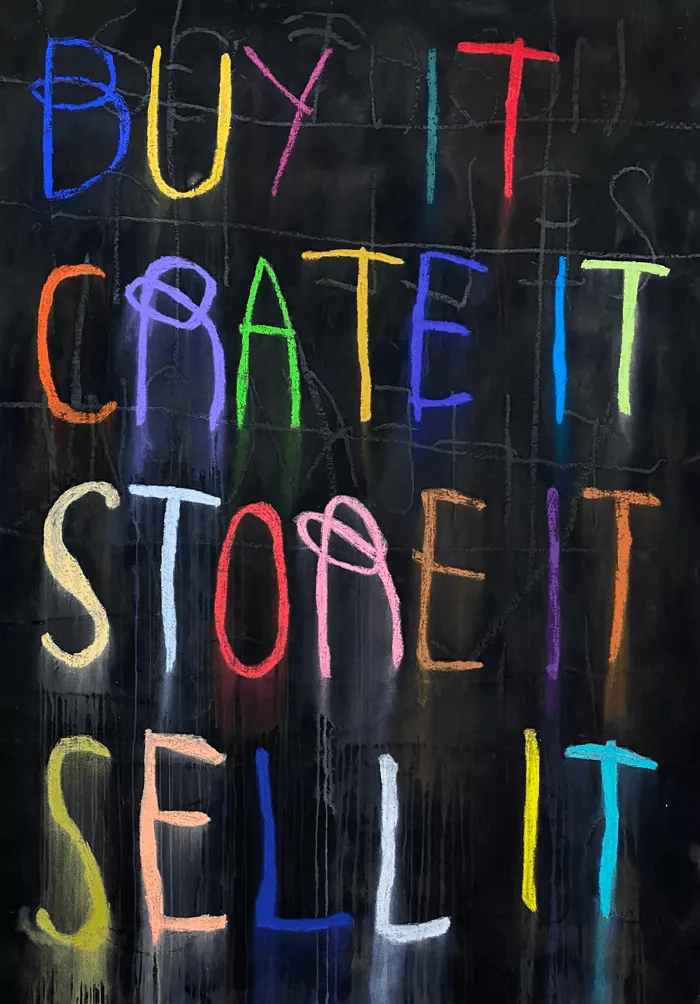 BUY IT
CRATE IT
STORE IT
SELL IT